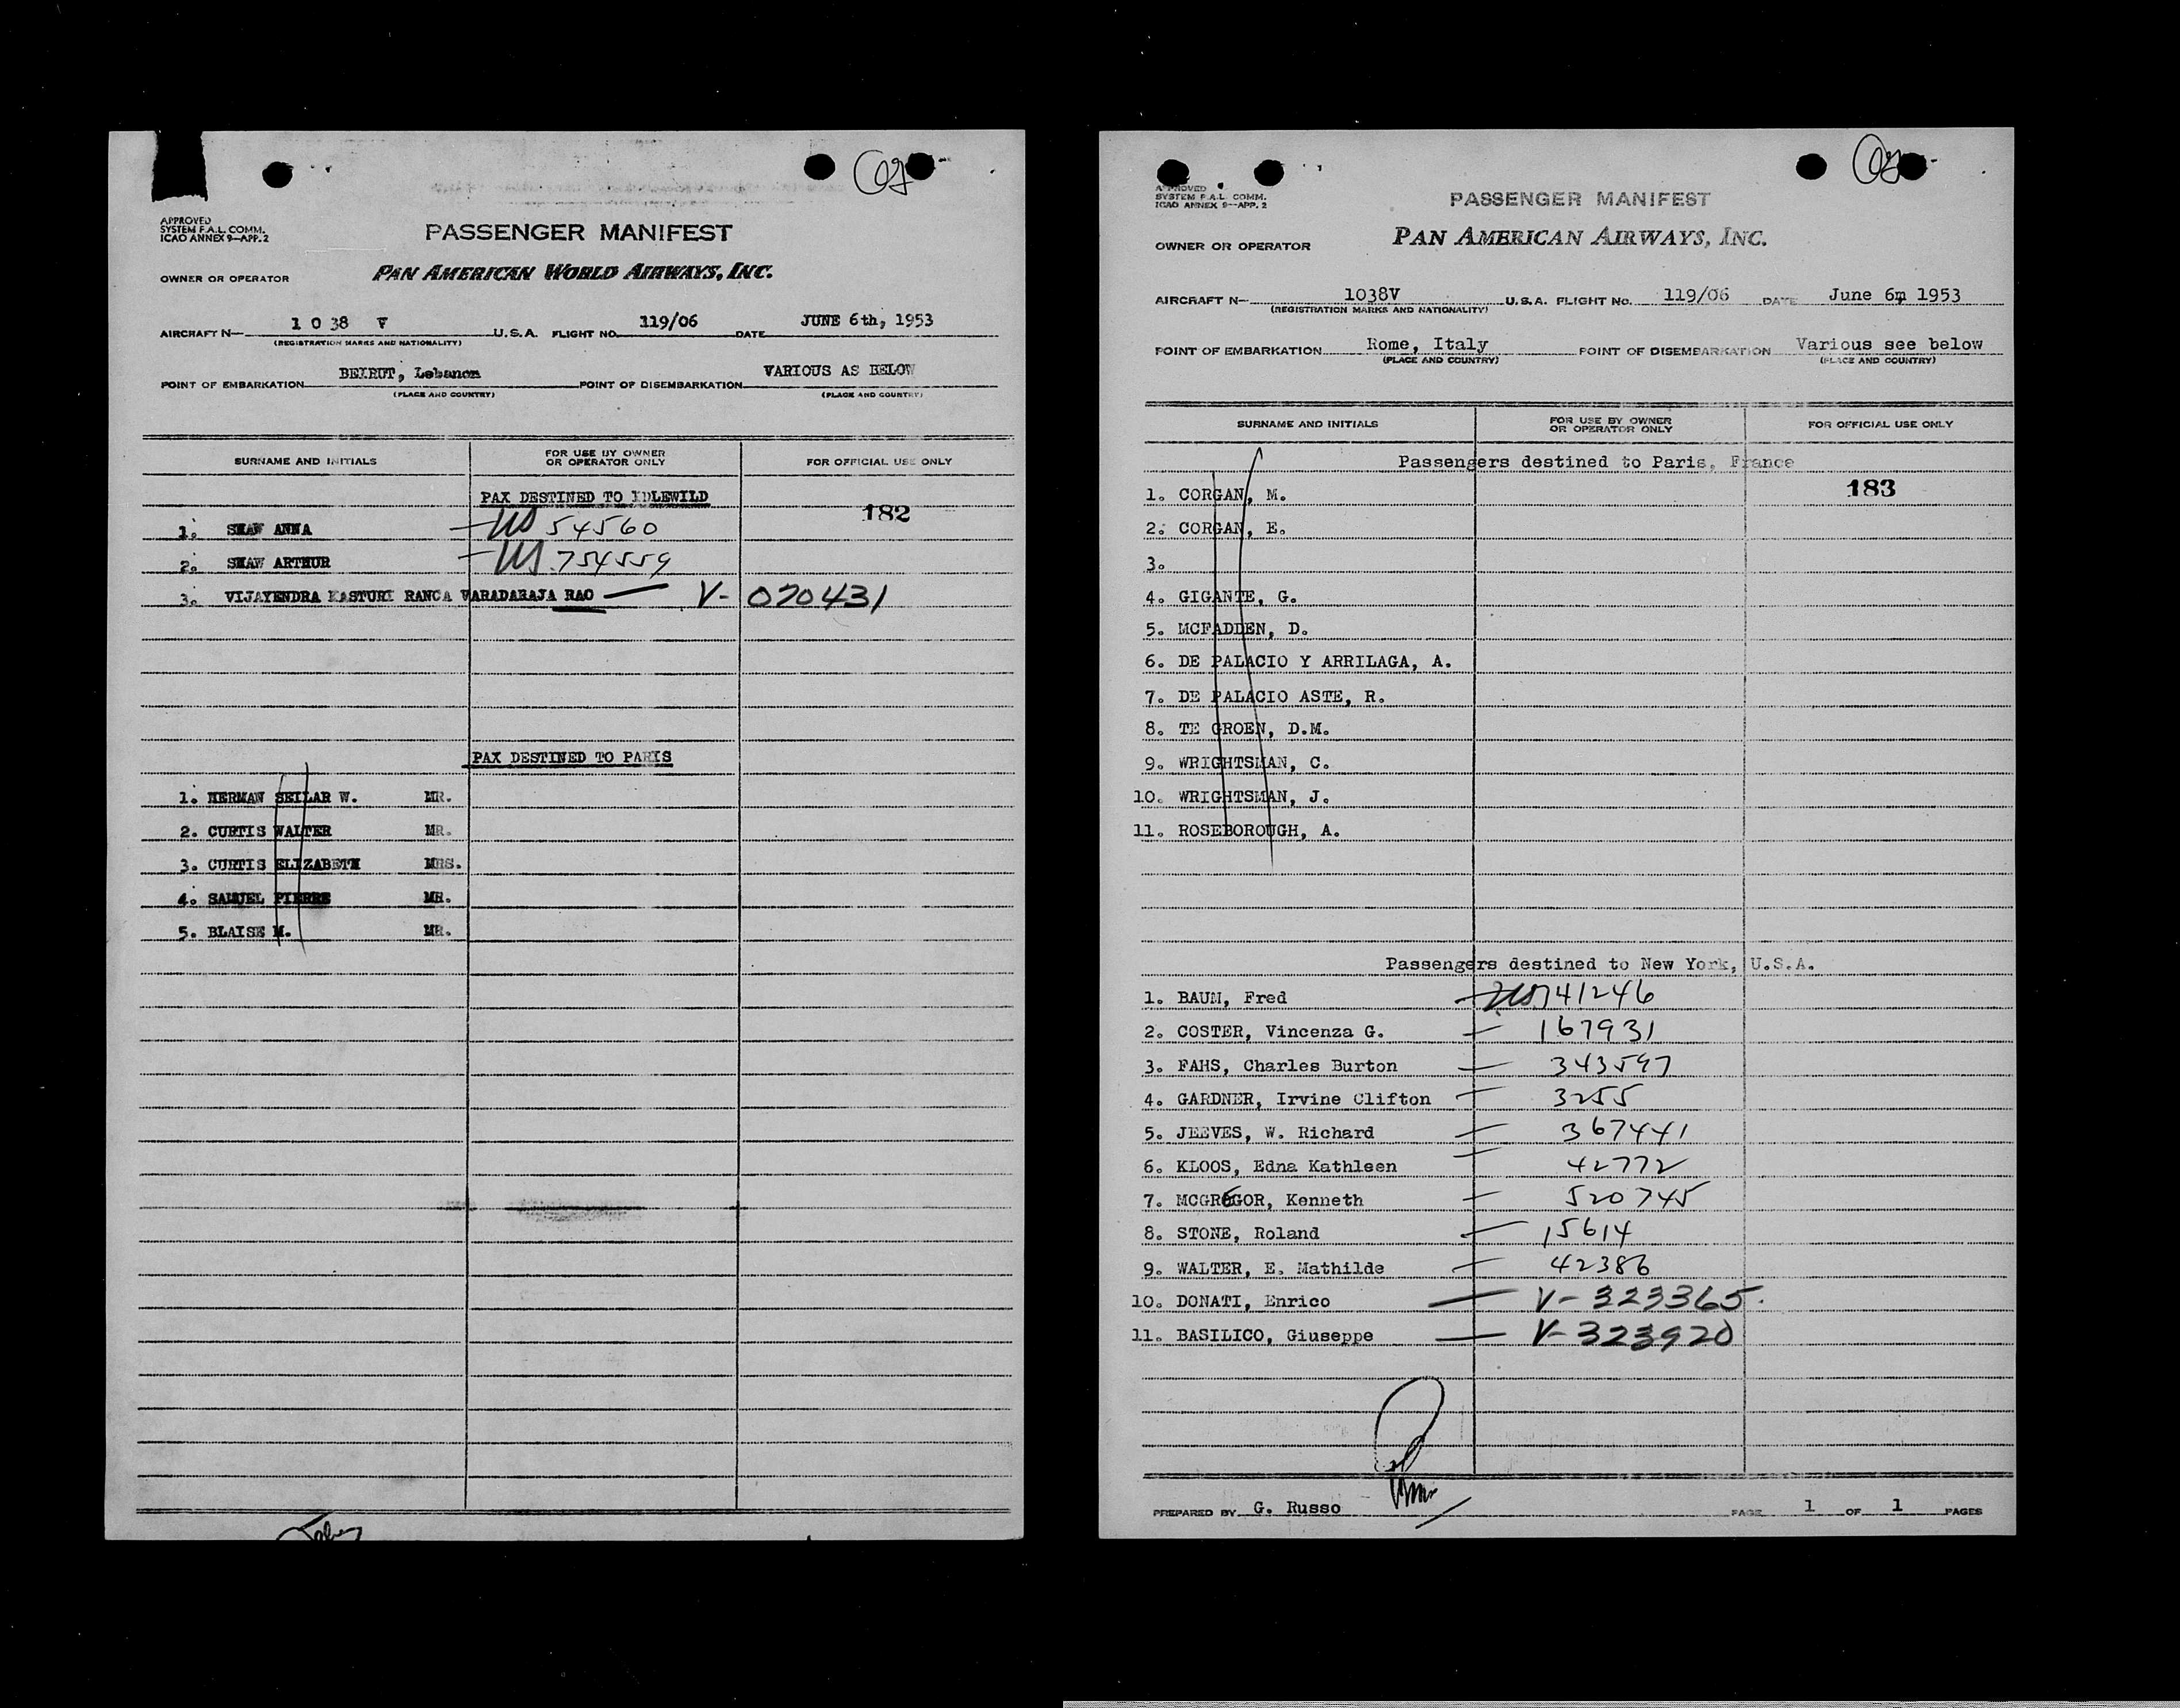 APPROVED
SYSTEM F.A.L. COMM.
ICAO ANNEX 9—APP. 2
PASSENGER MANIFEST
OWNER OR OPERATOR
PAN AMERICAN WORLD AIRWAYS, INC.
AIRCRAFT N— 1 0 38 V U.S.A. FLIGHT NO. 119/06 DATE JUNE 6th, 1953
(REGISTRATION MARKS AND NATIONALITY)
POINT OF EMBARKATION BEIRUT, Lebanon POINT OF DISEMBARKATION VARIOUS AS BELOW
(PLACE AND COUNTRY) (PLACE AND COUNTRY)
SURNAME AND INITIALS
FOR USE BY OWNER
OR OPERATOR ONLY
FOR OFFICIAL USE ONLY
PAX DESTINED TO IDLEWILD
182
1. SHAW ANNA — US 54560
2. SHAW ARTHUR — US 754559
3. VIJAYENDRA KASTURI RANGA VARADARAJA RAO — V- 070431
PAX DESTINED TO PARIS
1. HERMAN SEILAR W. MR.
2. CURTIS WALTER MR.
3. CURTIS ELIZABETH MRS.
4. SAMUEL PIERRE MR.
5. BLAISE M. MR.
APPROVED
SYSTEM F.A.L. COMM.
ICAO ANNEX 9—APP. 2
PASSENGER MANIFEST
OWNER OR OPERATOR
PAN AMERICAN AIRWAYS, INC.
AIRCRAFT N— 1038V U.S.A. FLIGHT NO. 119/06 DATE June 6, 1953
(REGISTRATION MARKS AND NATIONALITY)
POINT OF EMBARKATION Rome, Italy POINT OF DISEMBARKATION Various see below
(PLACE AND COUNTRY) (PLACE AND COUNTRY)
SURNAME AND INITIALS
FOR USE BY OWNER
OR OPERATOR ONLY
FOR OFFICIAL USE ONLY
Passengers destined to Paris, France
183
1. CORGAN, M.
2. CORGAN, E.
3.
4. GIGANTE, G.
5. MCFADDEN, D.
6. DE PALACIO Y ARRILAGA, A.
7. DE PALACIO ASTE, R.
8. TE GROEN, D.M.
9. WRIGHTSMAN, C.
10. WRIGHTSMAN, J.
11. ROSEBOROUGH, A.
Passengers destined to New York, U.S.A.
1. BAUM, Fred — US 741246
2. COSTER, Vincenza G. — 167931
3. FAHS, Charles Burton — 343597
4. GARDNER, Irvine Clifton — 3255
5. JEEVES, W. Richard — 367441
6. KLOOS, Edna Kathleen — 42772
7. MCGREGOR, Kenneth — 520745
8. STONE, Roland — 15614
9. WALTER, E. Mathilde — 42386
10. DONATI, Enrico — V- 323365
11. BASILICO, Giuseppe — V- 323920
PREPARED BY G. Russo PAGE 1 OF 1 PAGES